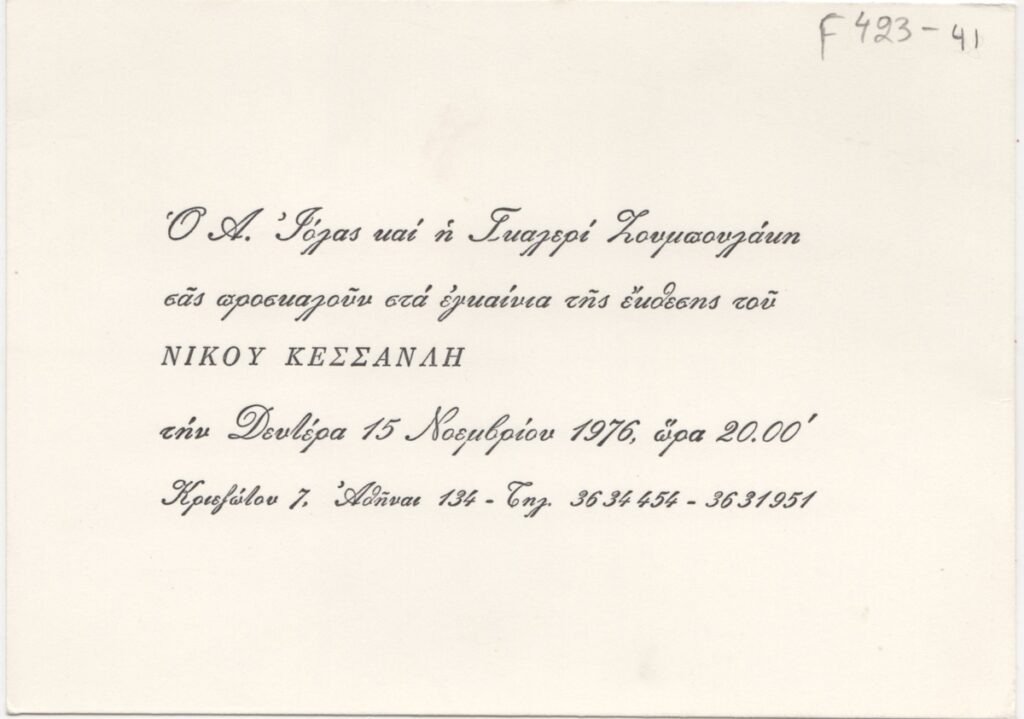 F 423-41
Ὁ Α. Ἰόλας καί ἡ Γκαλερί Ζουμπουλάκη
σᾶς προσκαλοῦν στά ἐγκαίνια τῆς ἔκθεσης τοῦ
ΝΙΚΟΥ ΚΕΣΣΑΝΛΗ
τήν Δευτέρα 15 Νοεμβρίου 1976, ὥρα 20.00΄
Κριεζώτου 7, Ἀθῆναι 134 - Τηλ. 3634454 - 3631951